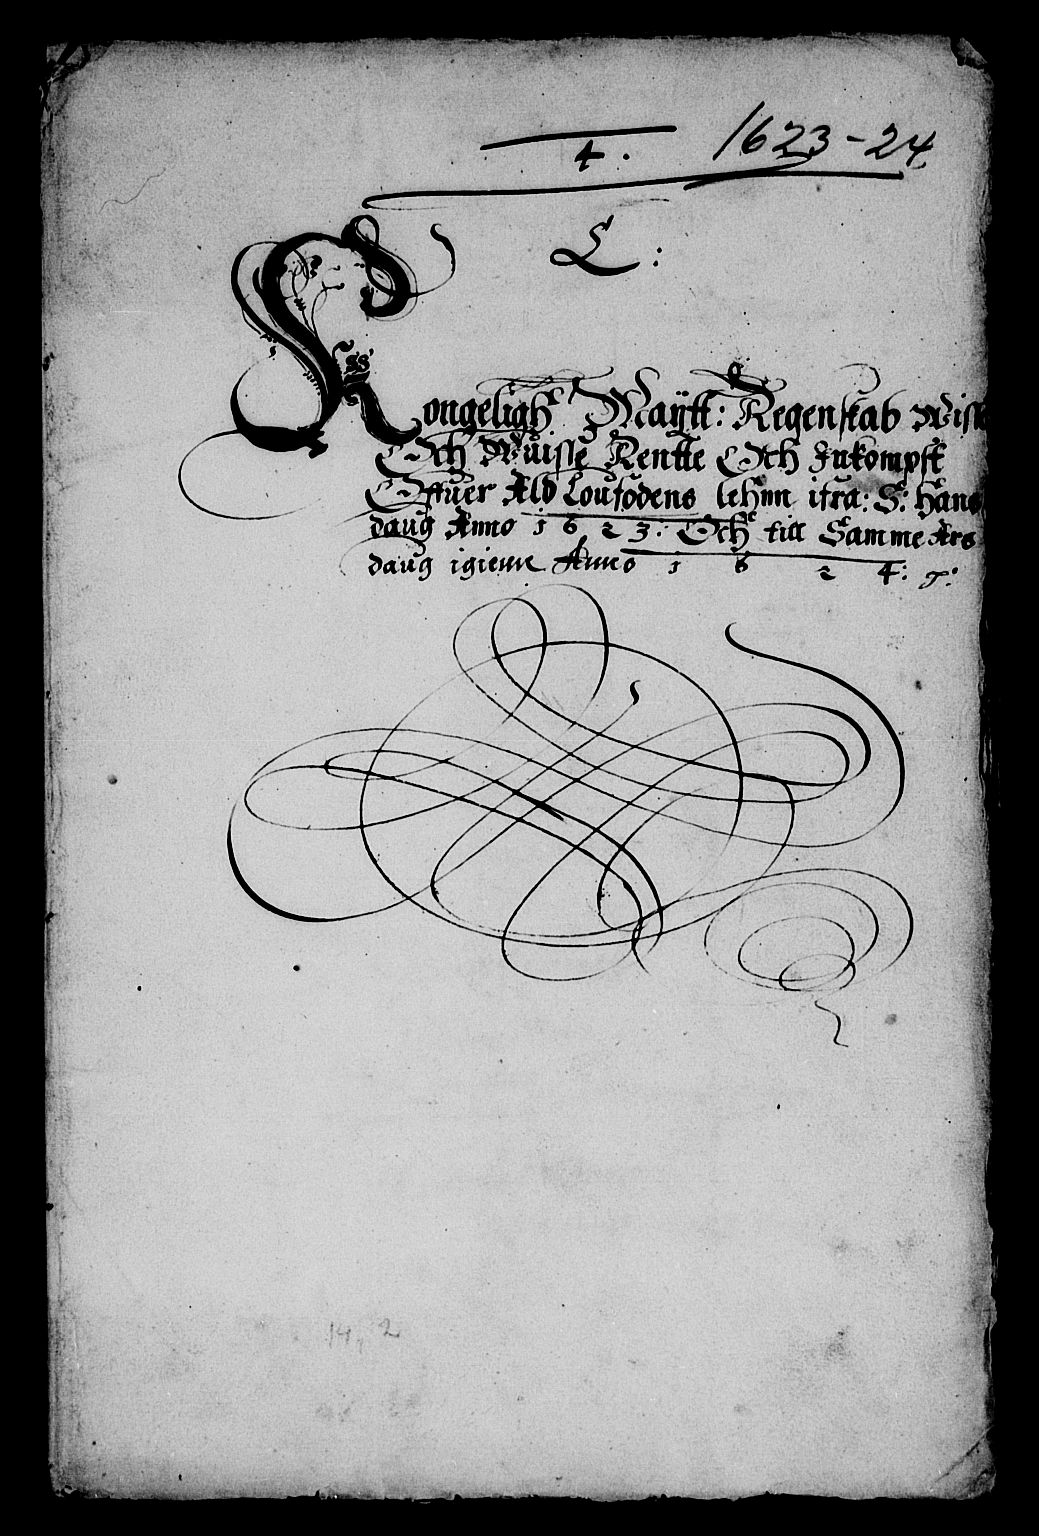 1623-24
4.
L:
Kongeligh Maÿtt: Regenskab Wisse
Och Wuisse Rentte Och Inkompst
Offuer Ald Loufodens lehnn ifra: S: Hans
daug Anno 1623: Och till Samme Ars
daug igienn Anno 1624:
14, 2